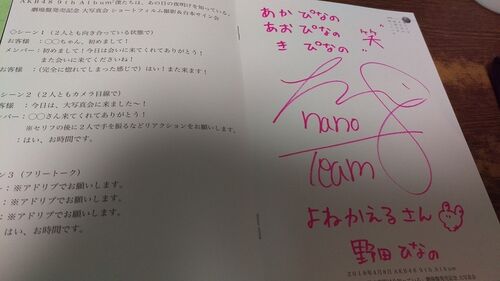 AKB48 9th Album「僕たちは、あの日の夜明けを知っている」
劇場盤発売記念 大写真会 ショートフィルム撮影&台本サイン会
○シーン1(2人とも向き合っている状態で)
お客様:○○ちゃん、初めまして!
メンバー:初めまして!今日は会いに来てくれてありがとう!
また会いに来てくださいね!
お客様:(完全に惚れてしまった感じで)はい!また来ます!
シーン2(2人ともカメラ目線で)
客様:今日は、大写真会に来ました〜!
ンバー:○○さん来てくれてありがとう!
※セリフの後に2人で手を振るなどリアクションをお願いします。
:はい、お時間です。
ン3(フリートーク)
:※アドリブでお願いします。
:※アドリブでお願いします。
※アドリブでお願いします。
はい、お時間です。
あかぴなの
あおぴなの
きぴなの 笑
nano
Team
よねかえるさん
野田ひなの
2018年4月8日 AKB48 9th Album
劇場盤発売記念 大写真会